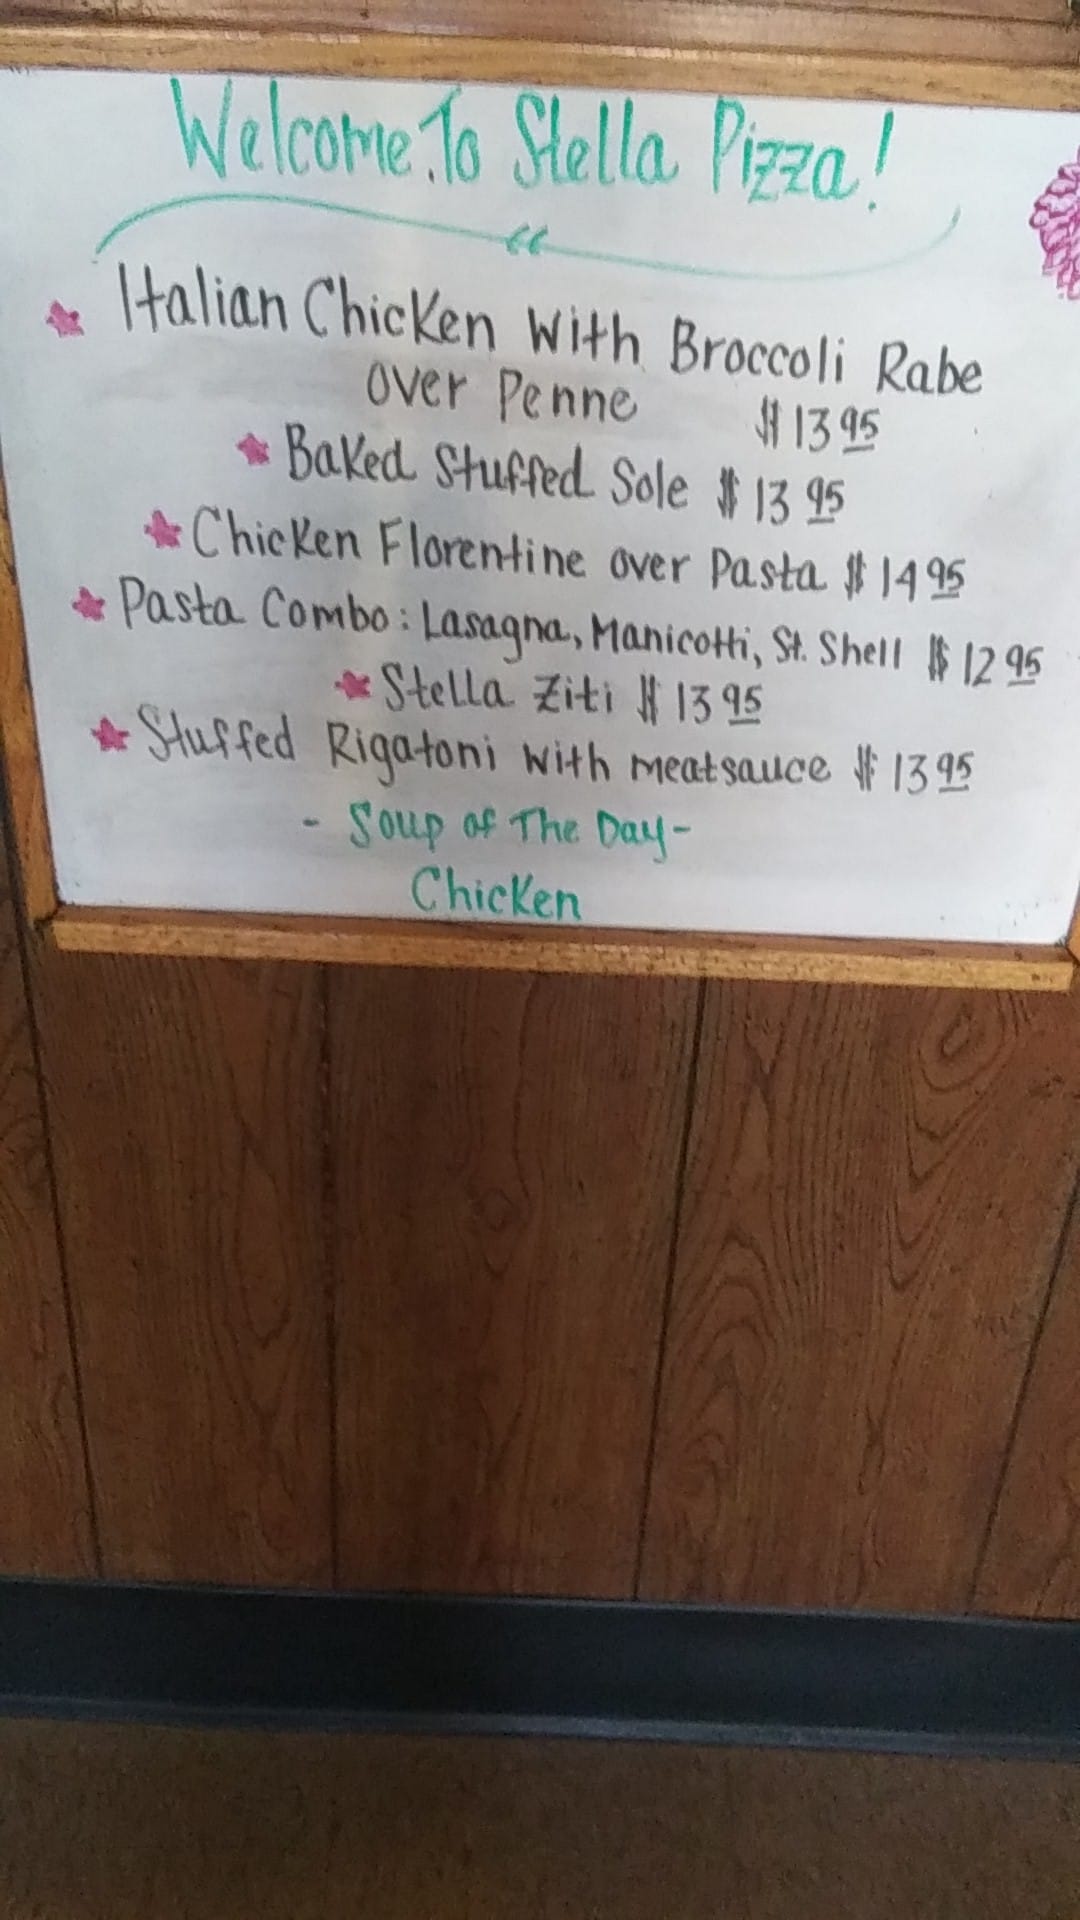 Welcome To Stella Pizza!
Italian Chicken With Broccoli Rabe
over Penne $13 95
Baked Stuffed Sole $13 95
Chicken Florentine over Pasta $14 95
Pasta Combo: Lasagna, Manicotti, St. Shell $12 95
Stella Ziti $13 95
Stuffed Rigatoni with meatsauce $13 95
- Soup of The Day -
Chicken